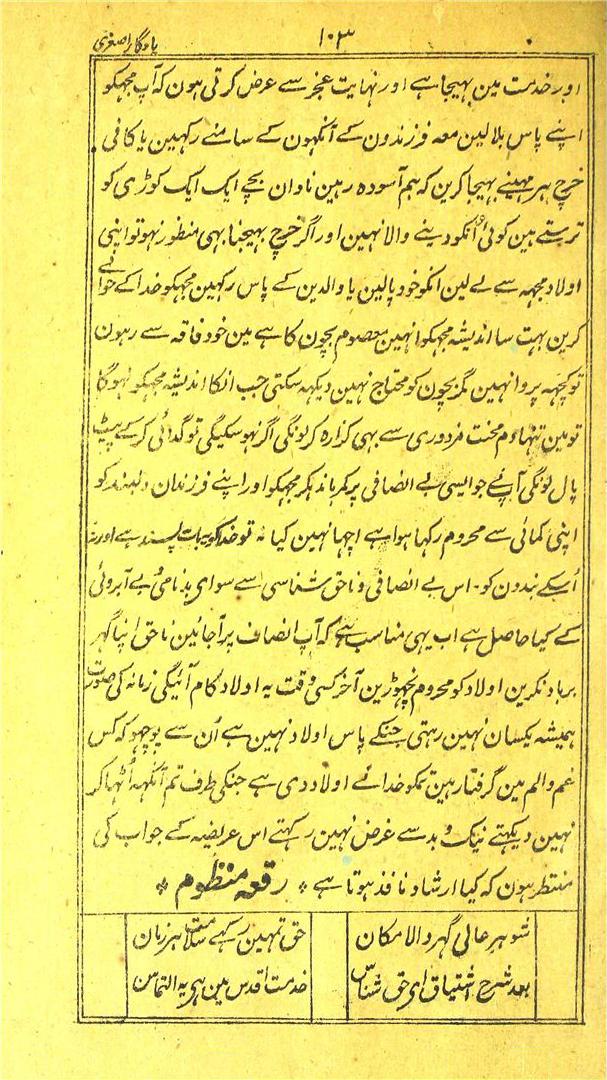 یادگار اصغری
۱۰۳
اور خدمت مین بہیجا ہے اور نہایت عجز سے عرض کرتی ہون کہ آپ مجہکو
اپنے پاس بلا لین معہ فرزندون کے آنکہون کے سامنے رکہین یا کافی
خرچ ہر مہینے بہیجا کرین کہ ہم آسودہ رہین نادان بچے ایک ایک کوڑی کو
ترستے ہین کوئی انکو دینے والا نہین اور اگر خرچ بہیجنا بہی منظور نہو تو اپنی
اولاد مجہہ سے لے لین انکو خود پالین یا والدین کے پاس رکہین مجہکو خدا کے حوالے
کرین بہت سا اندیشہ مجہکو انہین معصوم بچون کا ہے مین خود فاقہ سے رہون
تو کچہہ پروا نہین مگر بچون کو محتاج نہین دیکہہ سکتی جب انکا اندیشہ مجہکو نہوگا
تو مین تنہا دم محنت مزدوری سے بہی گذارہ کر لونگی اگر نہو سکیگی تو گدائی کر کے پیٹ
پال لونگی آپنے جو ایسی بے انصافی پر کمر باندہکر مجہکو اور اپنے فرزندان دلبند کو
اپنی کمائی سے محروم رکہا ہوا ہے اچہا نہین کیا نہ تو خدا کو یہ بات پسند ہے اور نہ
اُسکے بندون کو۔ اس بے انصافی و ناحق شناسی سے سوای بدنامی و بے آبروئی
کے کیا حاصل ہے اب یہی مناسب ہے کہ آپ انصاف پر آجائین ناحق اپنا گہر
برباد نکرین اولاد کو محروم نچہوڑین آخر کسی وقت یہ اولاد کام آئیگی زمانہ کی صورت
ہمیشہ یکسان نہین رہتی جنکے پاس اولاد نہین ہے اُن سے پوچہو کہ کس
غم و الم مین گرفتار ہین تمکو خدا نے اولاد دی ہے جنکی طرف تم آنکہہ اُٹہا کر
نہین دیکہتے نیک و بد سے غرض نہین رکہتے اس عریضہ کے جواب کی
منتظر ہون کہ کیا ارشاد نافذ ہوتا ہے * رقعہ منظوم *
شوہر عالی گہر والا مکان حق تمہین رکہے سلامت ہر زمان
بعد شرح اشتیاق ای حق شناس خدمت اقدس مین ہی یہ التماس